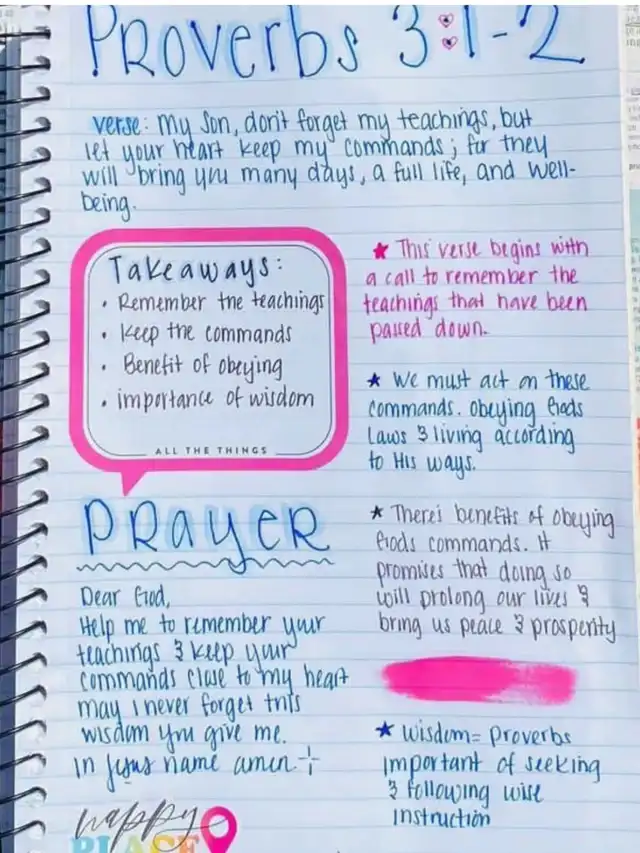 Proverbs 3:1-2
verse: My Son, don't forget my teachings, but
let your heart keep my commands; for they
will bring you many days, a full life, and well-
being.
Takeaways:
• Remember the teachings
• Keep the commands
• Benefit of obeying
• importance of wisdom
ALL THE THINGS
★ This verse begins with
a call to remember the
teachings that have been
passed down.
★ We must act on these
commands. Obeying Gods
Laws & living according
to His ways.
★ There's benefits of obeying
Gods commands. It
promises that doing so
will prolong our lives &
bring us peace & prosperity
★ Wisdom = Proverbs
important of seeking
& following wise
instruction
PRAYER
Dear God,
Help me to remember your
teachings & keep your
commands close to my heart
may I never forget this
wisdom you give me.
In Jesus name amen +
happy
PLACE